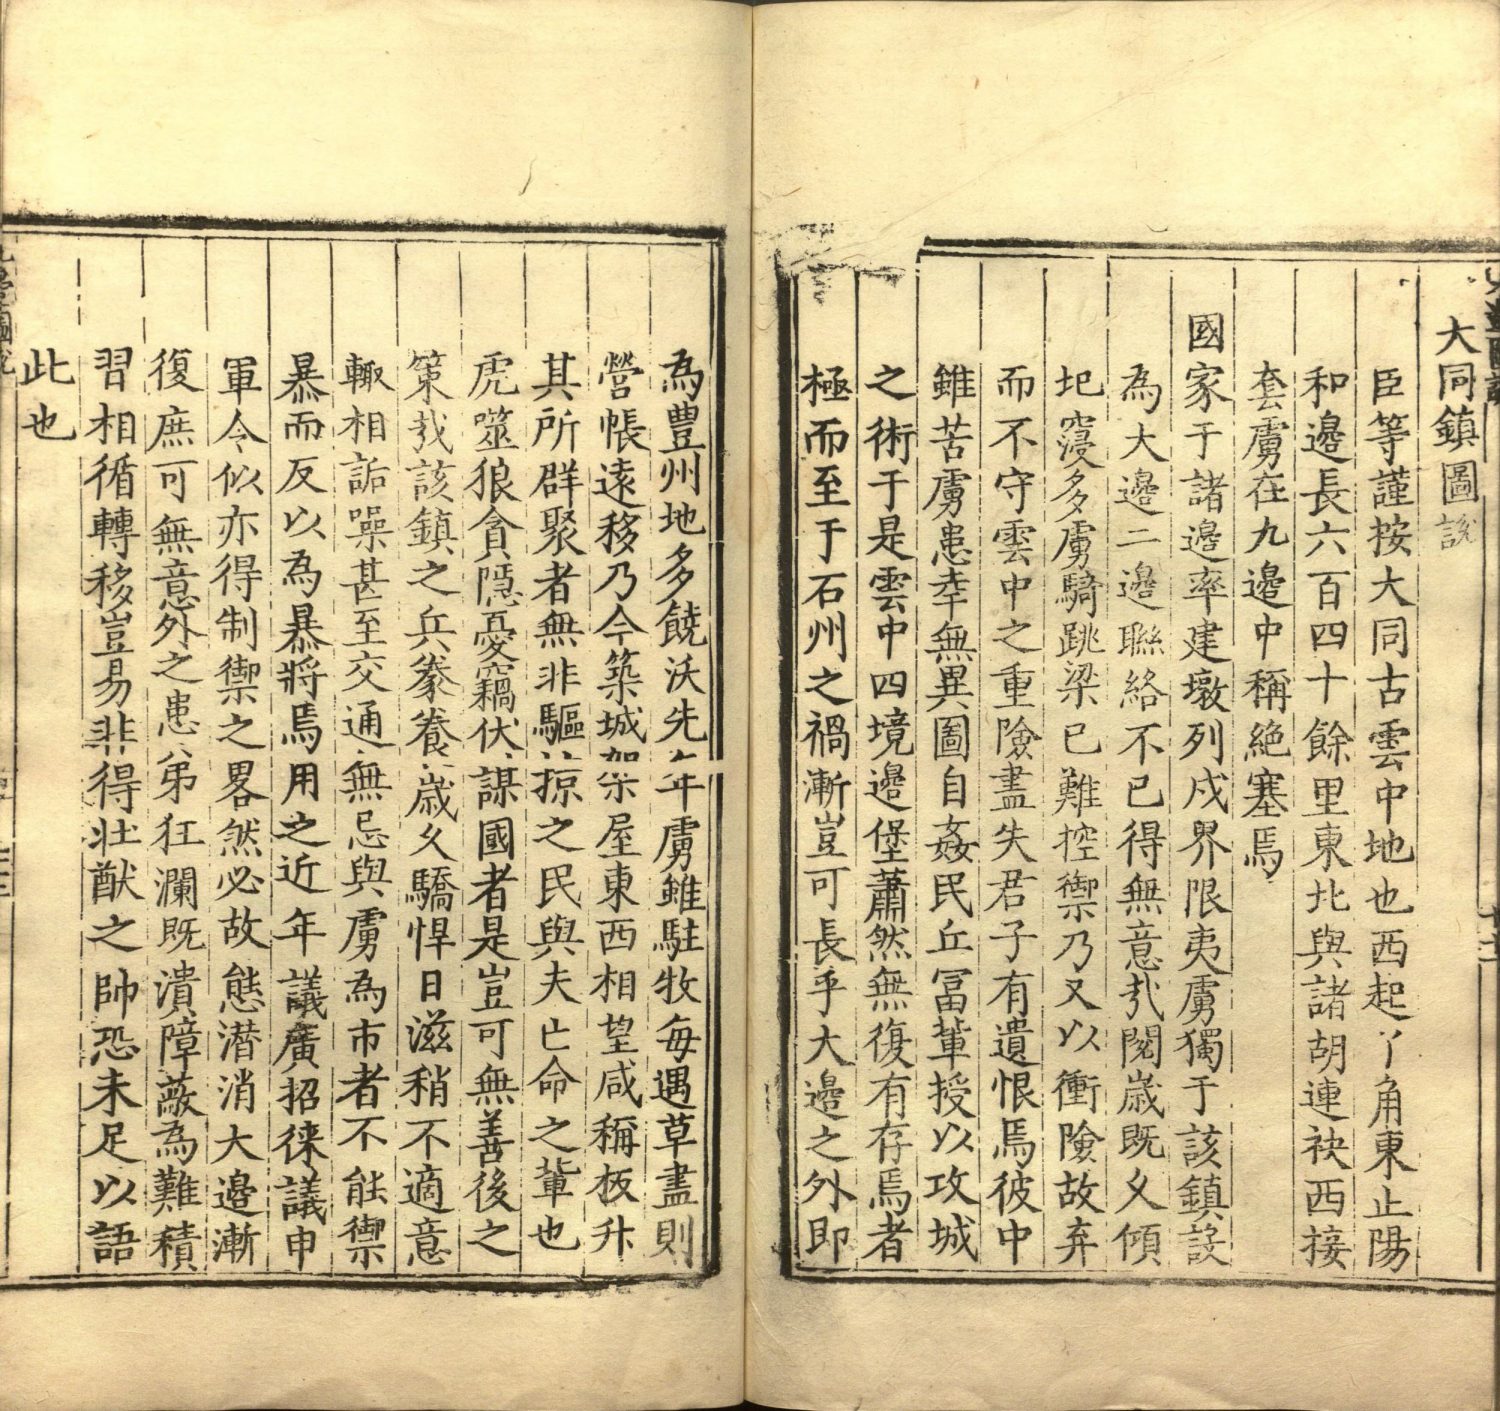 大同鎮圖説
臣等謹按大同古雲中地也西起丫角東止陽
和邊長六百四十餘里東北與諸胡連袂西接
套虜在九邊中稱絶塞焉
國家于諸邊率建墩列戍界限夷虜獨于該鎮設
為大邊二邊聯絡不已得無意㢤閱歲既久傾
圮寖多虜騎跳梁已難控禦乃又以衝險故弃
而不守雲中之重險盡失君子有遺恨焉彼中
雖苦虜患幸無異圖自姦民丘冨軰授以攻城
之術于是雲中四境邊堡蕭然無復有存焉者
極而至于石州之禍漸豈可長乎大邊之外即
為豊州地多饒沃先年虜雖駐牧每遇草盡則
營帳遠移乃今築城架屋東西相望咸稱板升
其所群聚者無非驅掠之民與夫亡命之軰也
虎噬狼貪隱憂竊伏謀國者是豈可無善後之
策㢤該鎮之兵豢養歲久驕悍日滋稍不適意
輙相詬噪甚至交通無忌與虜為市者不能禦
暴而反以為暴將焉用之近年議廣招徠議申
軍令似亦得制禦之畧然必故態潜消大邊漸
復庶可無意外之患苐狂瀾既潰障蔽為難積
習相循轉移豈易非得壮猷之帥恐未足以語
此也